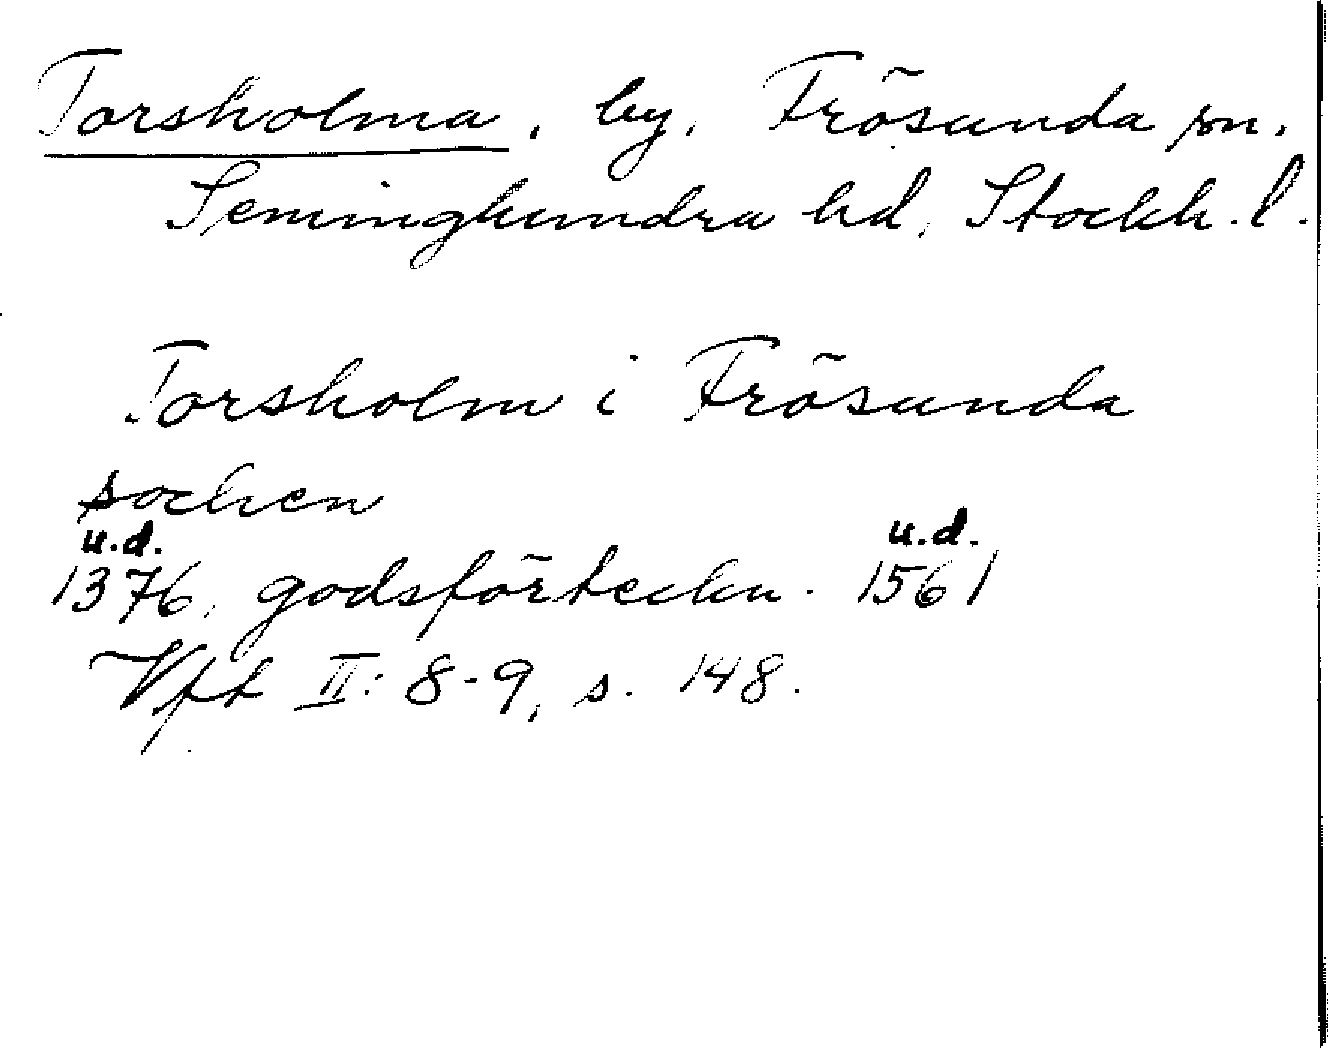 Torsholma, by, Frösunda sn,
Seminghundra hd, Stockh. l.
Torsholm i Frösunda
sochen
u.d. u.d.
1376, godsförteckn. 1561
Vft II: 8-9, s. 148.